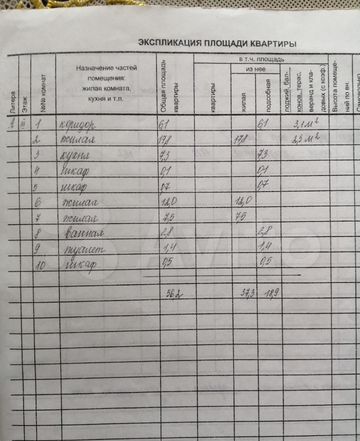 ЭКСПЛИКАЦИЯ ПЛОЩАДИ КВАРТИРЫ
Литера
Этаж
№№ комнат
Назначение частей помещения: жилая комната, кухня и т.п.
Общая площадь квартиры
в т.ч. площадь
квартиры
из нее
жилая
подсобная
лоджий, бал-, конов, терас, веранд и кла- довых (с коэф.)
Высота помеще- ний по вн.
1 коридор 6,1 6,1 3,1 м²
2 жилая 17,8 17,8 2,3 м²
3 кухня 7,3 7,3
4 шкаф 0,1 0,1
5 шкаф 0,7 0,7
6 жилая 12,0 12,0
7 жилая 7,5 7,5
8 ванная 2,8 2,8
9 туалет 1,4 1,4
10 шкаф 0,5 0,5
56,2 37,3 18,9
Avito